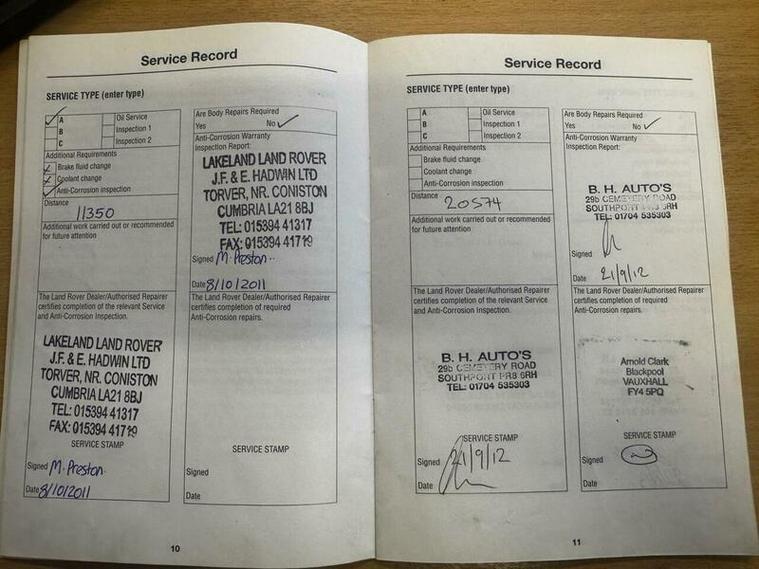 Service Record
SERVICE TYPE (enter type)
A Oil Service
B Inspection 1
C Inspection 2
Additional Requirements
Brake fluid change
Coolant change
Anti-Corrosion inspection
Distance
11350
Additional work carried out or recommended
for future attention
The Land Rover Dealer/Authorised Repairer
certifies completion of the relevant Service
and Anti-Corrosion Inspection.
LAKELAND LAND ROVER
J.F. & E. HADWIN LTD
TORVER, NR. CONISTON
CUMBRIA LA21 8BJ
TEL: 015394 41317
FAX: 015394 41719
SERVICE STAMP
Signed M. Preston
Date 8/10/2011
Are Body Repairs Required
Yes No
Anti-Corrosion Warranty
Inspection Report:
LAKELAND LAND ROVER
J.F. & E. HADWIN LTD
TORVER, NR. CONISTON
CUMBRIA LA21 8BJ
TEL: 015394 41317
FAX: 015394 41719
Signed M. Preston
Date 8/10/2011
The Land Rover Dealer/Authorised Repairer
certifies completion of required
Anti-Corrosion repairs.
SERVICE STAMP
Signed
Date
10
Service Record
SERVICE TYPE (enter type)
A Oil Service
B Inspection 1
C Inspection 2
Additional Requirements
Brake fluid change
Coolant change
Anti-Corrosion inspection
Distance
20574
Additional work carried out or recommended
for future attention
The Land Rover Dealer/Authorised Repairer
certifies completion of the relevant Service
and Anti-Corrosion Inspection.
B. H. AUTO'S
29b CEMETERY ROAD
SOUTHPORT PR8 6RH
TEL: 01704 535303
SERVICE STAMP
Signed 21/9/12
Date
Are Body Repairs Required
Yes No
Anti-Corrosion Warranty
Inspection Report:
B. H. AUTO'S
29b CEMETERY ROAD
SOUTHPORT PR8 6RH
TEL: 01704 535303
Signed
Date 21/9/12
The Land Rover Dealer/Authorised Repairer
certifies completion of required
Anti-Corrosion repairs.
Arnold Clark
Blackpool
VAUXHALL
FY4 5PQ
SERVICE STAMP
Signed
Date
11